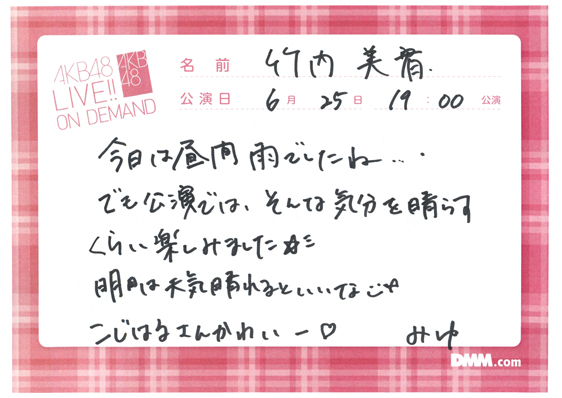 AKB48
LIVE!!
ON DEMAND
AKB
48
名前 竹内 美宥.
公演日 6月 25日 19:00 公演
今日は昼間 雨でしたね...
でも公演では、そんな気分を晴らす
くらい楽しみました☆ミ
明日は天気晴れるといいな
こじはるさんかわいー♡ みゆ
DMM.com